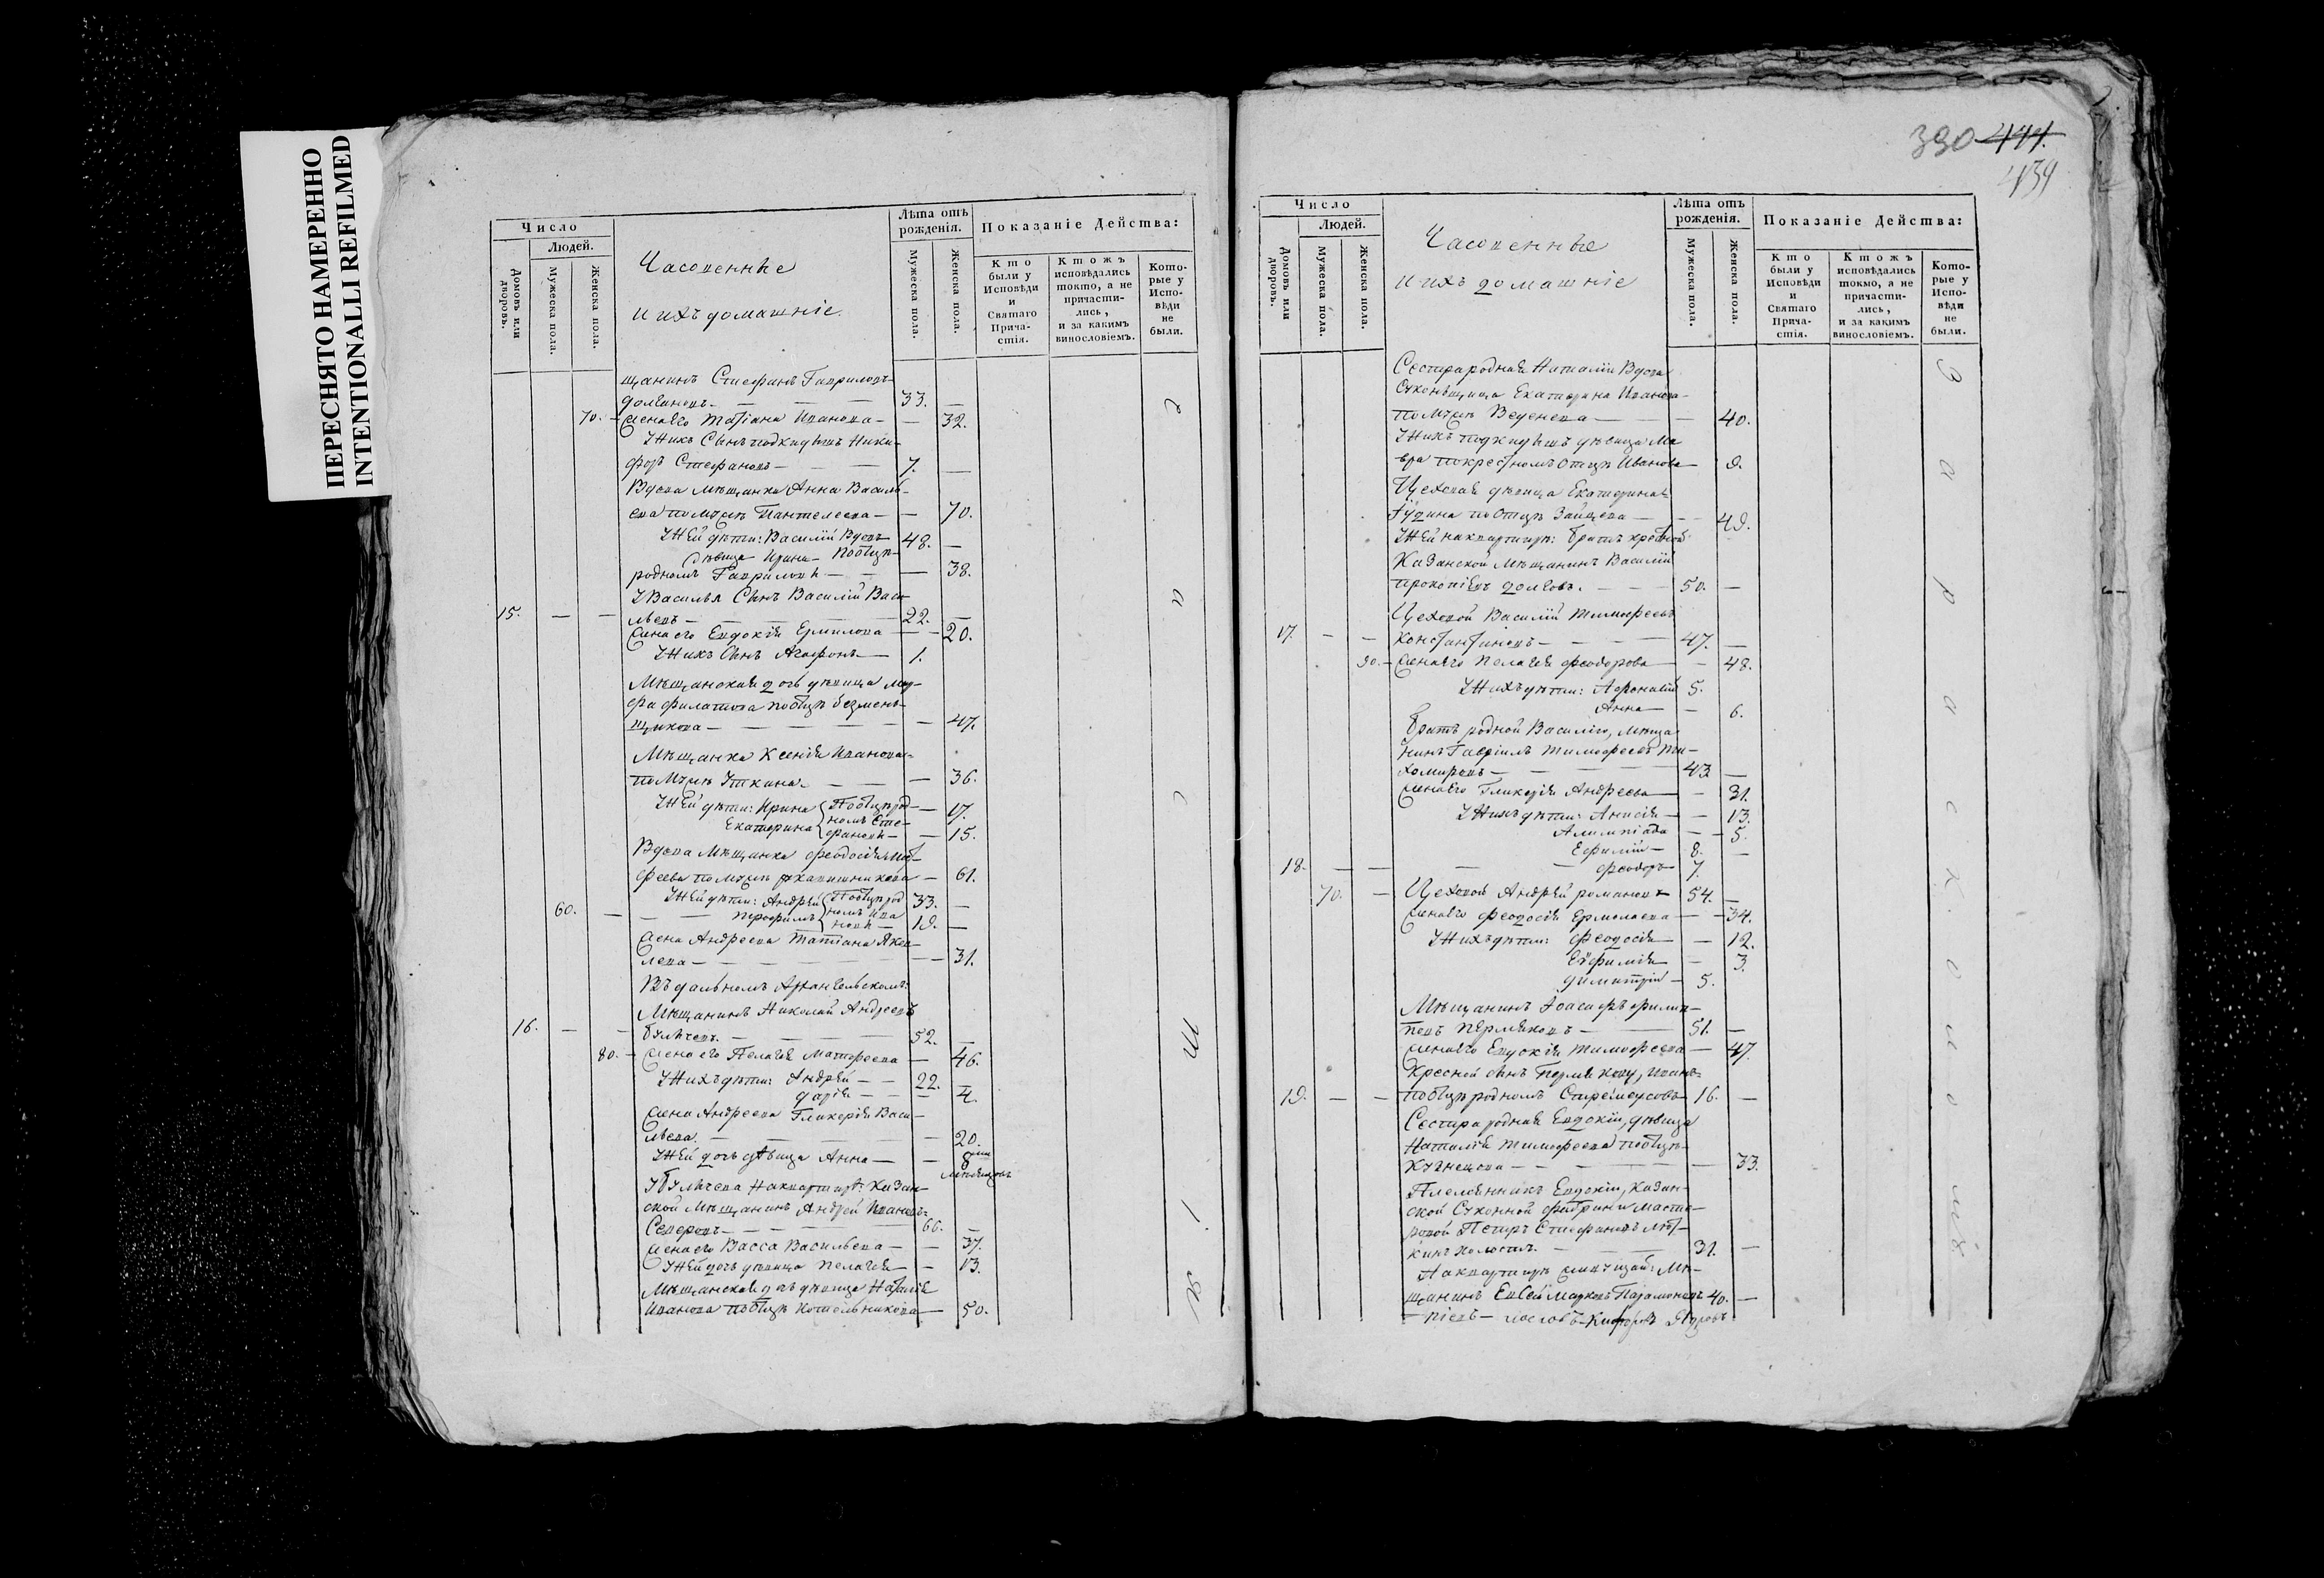 ПЕРЕСНЯТО НАМЕРЕННО
INTENTIONALLI REFILMED
Число
Людей.
Домовъ или дворовъ.
Мужеска пола.
Женска пола.
Часовенные
и ихъ домашніе
Лѣта отъ рожденія.
Мужеска пола.
Женска пола.
Показаніе Действа:
Кто были у Исповѣди и Святаго Прича-стія.
Ктожъ исповѣдались токмо, а не причасти-лись, и за какимъ винословіемъ.
Кото-рые у Испо-вѣди не были.
щанинъ Стефанъ Гавриловъ
33. —
70. — Жена его Татіана Иванова — — 32.
У нихъ Сынъ подкидышъ Ники-
форъ Стефановъ — 7. —
Вдова Мѣщанка Анна Василь-
ева по Мужѣ Пантелеева — — 70.
У ней дѣти: Василій Вдовъ 48. —
дѣвица Ирина — по Отцѣ
родномъ Гаврилов — — 38.
У Василья Сынъ Василій Васи-
15. — — льевъ — 22. —
Жена его Евдокія Ермилова — — 20.
У нихъ Сынъ Агафонъ — 1.
Мѣщанская дочь дѣвица Мар-
фа Филатова по Отцѣ Безмень-
щикова — — 47.
Мѣщанка Ксенія Иванова
по Мужѣ Уткина — — 36.
У ней дѣти: Ирина { По Отцѣ род- — 17.
Екатерина { номъ Сте- фанов — — 15.
Вдова Мѣщанка Феодосія Мат-
феева по Мужѣ — 61.
У ней дѣти: Андрей { По Отцѣ род 33. —
60. — номъ Ива нов — 19. —
Жена Андреева Татіана Яков-
лева — — 31.
Въ дальномъ Архангельскомъ:
Мѣщанинъ Николай Андреевъ
16. — — Булычевъ 52. —
80. — Жена его Пелагія Матфеева — 46.
У нихъ дѣти: Андрей — 22. —
Дарія — — 4.
Жена Андреева Гликерія Васи-
льева — — 20.
У ней дочь дѣвица Анна — — 8
У Булычева на квартирѣ: Казан-
ской Мѣщанинъ Андрей Ивановъ
Северовъ — 66. —
Жена его Васса Васильева — — 37.
У ней дочь дѣвица Пелагія — — 13.
Мѣщанская дочь дѣвица Наталія
Иванова по Отцѣ Котельникова — 50.
390 444.
439
Число
Людей.
Домовъ или дворовъ.
Мужеска пола.
Женска пола.
Часовенные
и ихъ домашніе
Лѣта отъ рожденія.
Мужеска пола.
Женска пола.
Показаніе Действа:
Кто были у Исповѣди и Святаго Прича-стія.
Ктожъ исповѣдались токмо, а не причасти-лись, и за какимъ винословіемъ.
Кото-рые у Испо-вѣди не были.
Сестра родная Наталіи Вдова
Суконьщица Екатерина Иванова
по Мужѣ Веденева — — 40.
У нихъ подкидышъ дѣвица Ма
вра по крестномъ Отцѣ Иванова — 9.
Цеховая дѣвица Екатерина
по Отцѣ Зайцева — — 49.
У ней на квартирѣ: братъ
Казанской Мѣщанинъ Василій
Прокопіевъ Долговъ. — 50. —
Цеховой Василій Тимофеевъ
17. — — Константиновъ — 47. —
90. — Жена его Пелагія Феодорова — — 48.
У нихъ дѣти: Афонасій 5.
Анна — — 6.
Братъ родной Василію, Мѣща-
нинъ Гавріилъ Тимофеевъ Ти-
хомировъ — 43 —
Жена его Гликерія Андреева — — 31.
У нихъ дѣти: Анисія — — 13.
Алимпіада — — 5.
Ефимій — 8. —
18. — — Феодоръ 7.
70. — Цеховой Андрей Романовъ 54. —
Жена его Феодосія Ермолаева — — 34.
У нихъ дѣти: Феодосія — — 12.
Евфимія — 3.
Димитрій — 5.
Мѣщанинъ Іоасафъ Филип-
повъ Пермяковъ — 51. —
Жена его Евдокія Тимофеева — 47.
Кресной сынъ Пермякову, Иванъ
19. — — по Отцѣ родномъ 16. —
Сестра родная Евдокіи, дѣвица
Наталія Тимофеева по Отцѣ
Кузнецова — — 33.
Племянникъ Евдокіи, Казан-
ской Суконной фабрики Масте-
ровой Петръ Стефановъ
холостъ. — 31. —
На квартирѣ Мѣ-
щанинъ Евсей Марковъ Парамоновъ 40. —